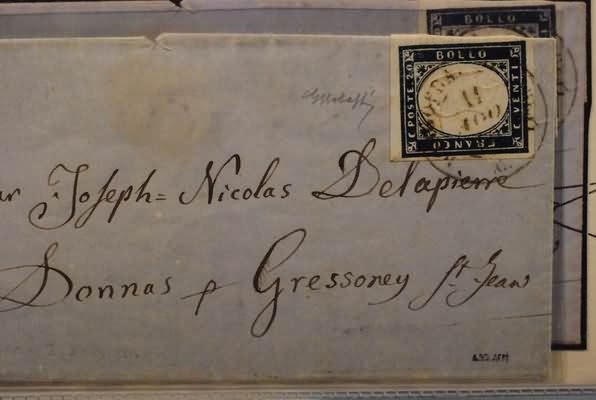 BOLLO
C. POSTE 20
C. VENTI
FRANCO
11
AGO
Joseph= Nicolas Delapierre
Donnas p Gressoney St. Jean
BOLLO